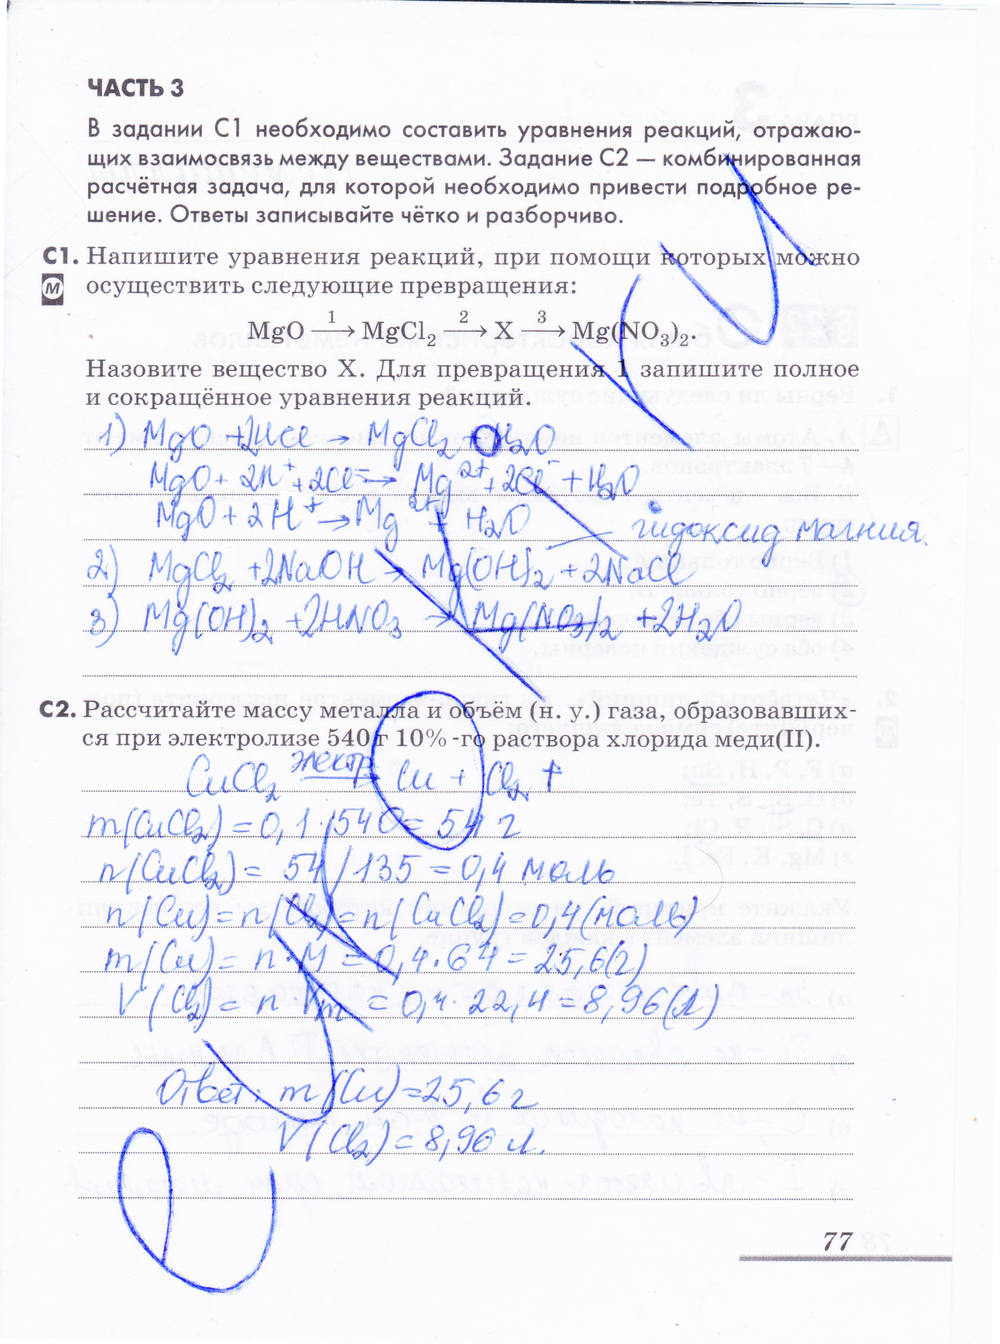 ЧАСТЬ 3
В задании С1 необходимо составить уравнения реакций, отражаю-
щих взаимосвязь между веществами. Задание С2 — комбинированная
расчётная задача, для которой необходимо привести подробное ре-
шение. Ответы записывайте чётко и разборчиво.
С1. Напишите уравнения реакций, при помощи которых можно
М осуществить следующие превращения:
MgO —1→ MgCl₂ —2→ X —3→ Mg(NO₃)₂.
Назовите вещество X. Для превращения 1 запишите полное
и сокращённое уравнения реакций.
1) MgO + 2HCl → MgCl₂ + H₂O
MgO + 2H⁺ + 2Cl⁻ → Mg²⁺ + 2Cl⁻ + H₂O
MgO + 2H⁺ → Mg²⁺ + H₂O
гидоксид магния.
2) MgCl₂ + 2NaOH → Mg(OH)₂ + 2NaCl
3) Mg(OH)₂ + 2HNO₃ → Mg(NO₃)₂ + 2H₂O
С2. Рассчитайте массу металла и объём (н. у.) газа, образовавших-
ся при электролизе 540 г 10%-го раствора хлорида меди(II).
CuCl₂ электр. → Cu + Cl₂ ↑
m(CuCl₂) = 0,1·540 = 54 г
n(CuCl₂) = 54/135 = 0,4 моль
n(Cu) = n(Cl₂) = n(CuCl₂) = 0,4 (моль)
m(Cu) = n·M = 0,4·64 = 25,6 (г)
V(Cl₂) = n·Vm = 0,4·22,4 = 8,96 (л)
Ответ: m(Cu) = 25,6 г
V(Cl₂) = 8,96 л.
77